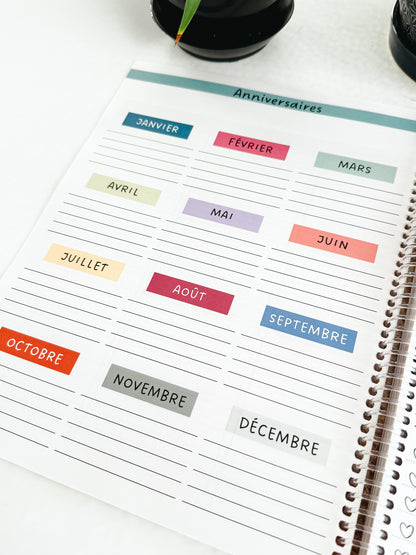 Anniversaires
JANVIER
FÉVRIER
MARS
AVRIL
MAI
JUIN
JUILLET
AOÛT
SEPTEMBRE
OCTOBRE
NOVEMBRE
DÉCEMBRE